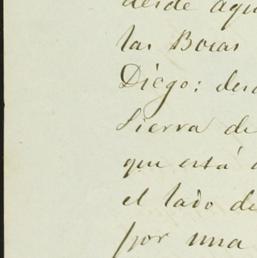 desde aqu
las Bocas
Diego: des
Sierra de
que está
el lado de
por una